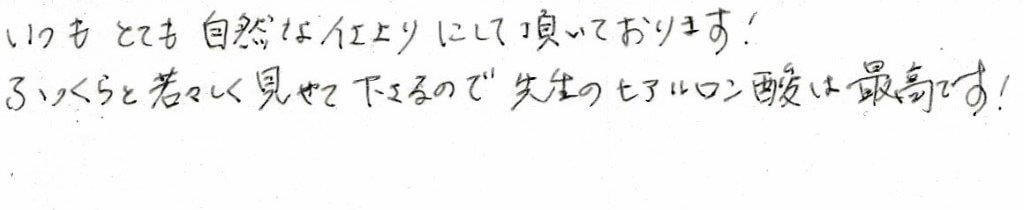 いつもとても自然な仕上りにして頂いております!
ふっくらと若々しく見せて下さるので先生のヒアルロン酸は最高です!